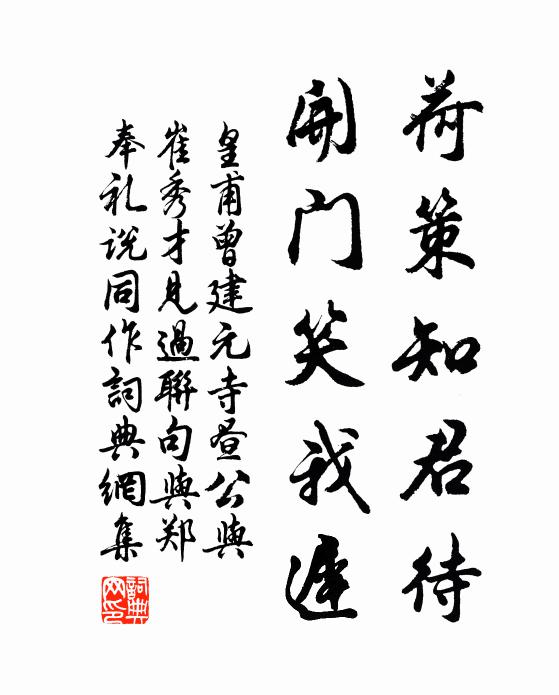 荷策知君待
開门笑我遲
皇甫曾建元寺昼公與
崔秀才見過聯句與郑
奉礼说同作詞典網集